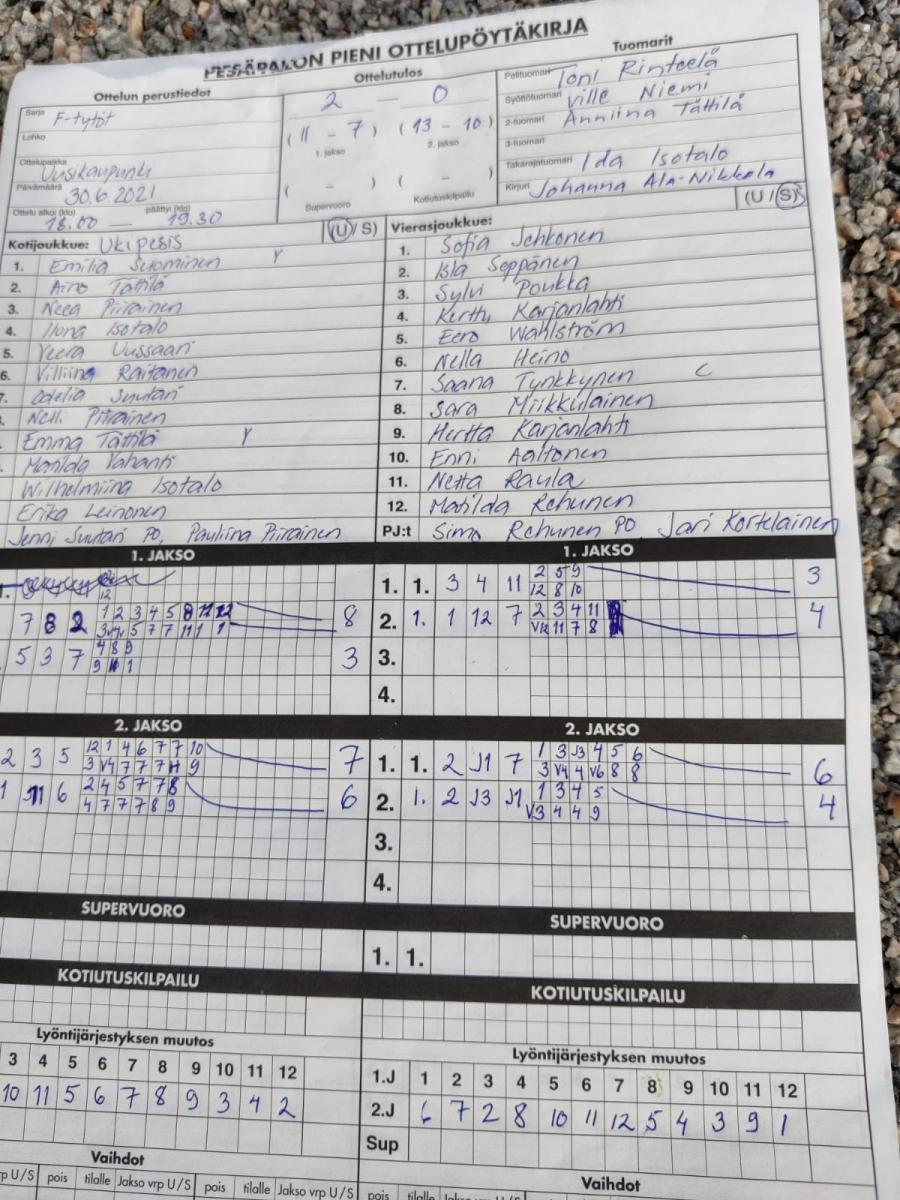 PESÄPALLON PIENI OTTELUPÖYTÄKIRJA
Ottelun perustiedot
Sarja F-tytöt
Lohko
Ottelupaikka Uusikaupunki
Päivämäärä 30.6.2021
Ottelu alkoi (klo) 18.00 — päättyi (klo) 19.30
Ottelutulos
2 — 0
(11 - 7) (13 - 10)
1. jakso 2. jakso
( - ) ( - )
Supervuoro Kotiutuskilpailu
Tuomarit
Pelituomari Toni Rintelä
Syöttötuomari Ville Niemi
2-tuomari Anniina Tättilä
3-tuomari
Takarajatuomari Ida Isotalo
Kirjuri Johanna Ala-Nikkola
Kotijoukkue: Ukipesis (U / S)
1. Emilia Suominen Y
2. Aino Tättilä
3. Neea Piirainen
4. Ilona Isotalo
5. Veera Uussaari
6. Villiina Raitanen
7. Odelia Suutari
Nelli Piirainen
Emma Tättilä Y
Matilda Vahanti
Wilhelmiina Isotalo
Erika Leinonen
Jenni Suutari PO, Pauliina Piirainen
Vierasjoukkue: (U / S)
1. Sofia Jehkonen
2. Isla Seppänen
3. Sylvi Poukka
4. Kerttu Karjanlahti
5. Eero Wahlström
6. Nella Heino
7. Saana Tynkkynen C
8. Sara Miikkulainen
9. Hertta Karjanlahti
10. Enni Aaltonen
11. Netta Raula
12. Matilda Rehunen
PJ:t Simo Rehunen PO Jari Kortelainen
1. JAKSO
12
7 8 2 1 2 3 4 5 8 11 12 8
5 7 7 11 1 1
5 3 7 4 8 9 3
9 1
1. JAKSO
1. 1. 3 4 11 2 5 9 3
12 8 10
2. 1. 1 12 7 2 3 4 11 4
V12 11 7 8
3.
4.
2. JAKSO
2 3 5 12 1 4 6 7 7 10 7
3 V4 7 7 7 11 9
1 11 6 2 4 5 7 7 8 6
4 7 7 7 8 9
2. JAKSO
1. 1. 2 J1 7 1 3 J3 4 5 6 6
3 V4 4 V6 8 8
2. 1. 2 J3 J1 1 3 4 5 4
V3 4 4 9
3.
4.
SUPERVUORO
SUPERVUORO
1. 1.
KOTIUTUSKILPAILU
KOTIUTUSKILPAILU
Lyöntijärjestyksen muutos
3 4 5 6 7 8 9 10 11 12
10 11 5 6 7 8 9 3 4 2
Lyöntijärjestyksen muutos
1.J 1 2 3 4 5 6 7 8 9 10 11 12
2.J 6 7 2 8 10 11 12 5 4 3 9 1
Sup
Vaihdot
vrp U/S pois tilalle Jakso vrp U/S pois tilalle Jakso vrp U/S
Vaihdot
pois tilalle Jakso vrp U/S pois tilalle Jakso vrp U/S